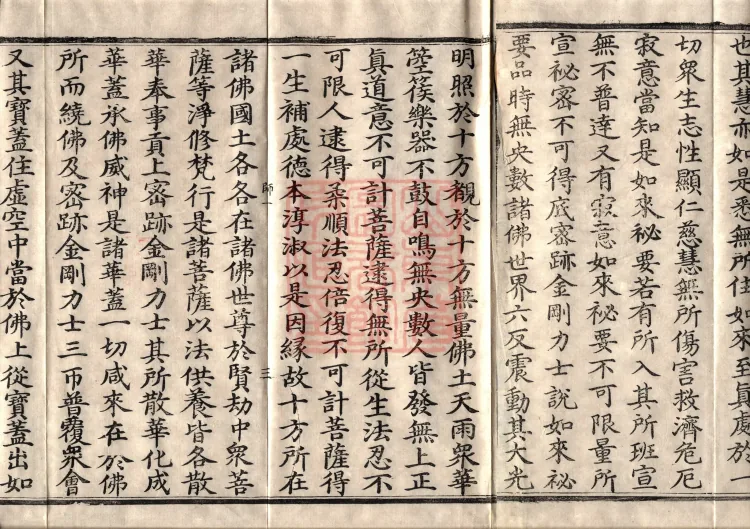 也其慧亦如是悉無所住如來至真處於一
切衆生志性顯仁慈慧無所傷害救濟危厄
寂意當知是如來祕要若有所入其所班宣
無不普達又有寂意如來祕要不可限量所
宣祕密不可得底密跡金剛力士說如來祕
要品時無央數諸佛世界六反震動其大光
明照於十方觀於十方無量佛土天雨衆華
箜篌樂器不鼓自鳴無央數人皆發無上正
真道意不可計菩薩逮得無所從生法忍不
可限人逮得柔順法忍倍復不可計菩薩得
一生補處德本淳淑以是因緣故十方所在
師一
三
諸佛國土各各在諸佛世尊於賢劫中衆菩
薩等淨修梵行是諸菩薩以法供養皆各散
華奉事貢上密跡金剛力士其所散華化成
華蓋承佛威神是諸華蓋一切咸來在於佛
所而繞佛及密跡金剛力士三帀普覆衆會
又其寶蓋住虛空中當於佛上從寶蓋出如